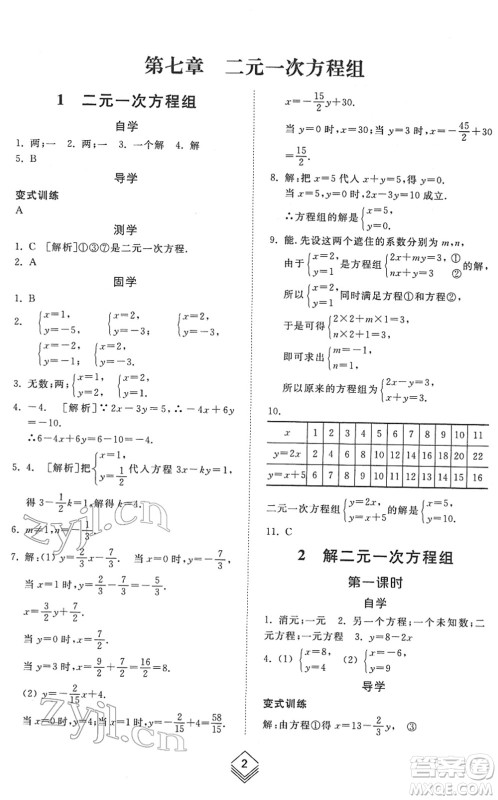 第七章 二元一次方程组
1 二元一次方程组
自学
1. 两;一 2. 一 两 一 3. 一个解 4. 解
5. B
导学
变式训练
A
测学
1. C [解析]①③⑦是二元一次方程.
2. A
固学
1. B
2. {x=1, y=-5, {x=2, y=-4, {x=3, y=-3;
{x=-1, y=-3, {x=-2, y=-2, {x=-3, y=-1
3. 无数;两;{x=1, y=2, {x=2, y=1
4. -4. [解析]∵2x-3y=-5,∴6x-9y
∴6-4x+6y=6-10=-4.
5. 4. [解析]把{x=1, y=1/2 代人方程3x-ky=1,
得3-1/2k=1,∴k=4.
6. m≠1,n=-1/3
7. 解:(1) y=2/3x-7/3
当x=0时,y=-7/3
当x=1时,y=2/3-7/3=-5/3.
x=3/2y+7/2.
当y=0时,x=7/2.
当y=3时,x=9/2+7/2=16/2=8.
(2) y=-2/15x+4.
当x=0时,y=4.当x=1时,y=-2/15+4=58/15.
x=-15/2y+30.
当y=0时,x=30.当y=3时,x=-45/2+30
=15/2.
8. 解:把x=5代人x+y=6,得y=1.
当x=5,y=1时,5x+y=26成立.
∴方程组的解是{x=5, y=1.
9. 能.先设两个遮住的系数分别为m,n,
由于{x=2, y=1 是方程组{2x+my=3, ① nx+y=3 ② 的解,
所以{x=2, y=1 同时满足方程①与方程②,
于是可得{2×2+m×1=3, n×2+1=3,
即可求出{m=-1, n=1,
所以原来的方程组为{2x-y=3, x+y=3.
10.
x 1 2 4 5 6 7 8 9 10 11
y=2x 2 4 8 10 12 14 16 18 20 22
y=x+5 6 7 9 10 11 12 13 14 15 16
二元一次方程组{y=2x, y=x+5 的解为{x=5, y=10.
11. C
2 解二元一次方程组
第一课时
自学
1. 消元;一元 2. 另一个方程;一个未知数;二元
一次 3. y=8-2x
4. (1) {x=8, y=4 (2) {x=6, y=9
导学
变式训练
解:由方程①得x=13-7/2y, ③
2
答案圈
zyjl.cn